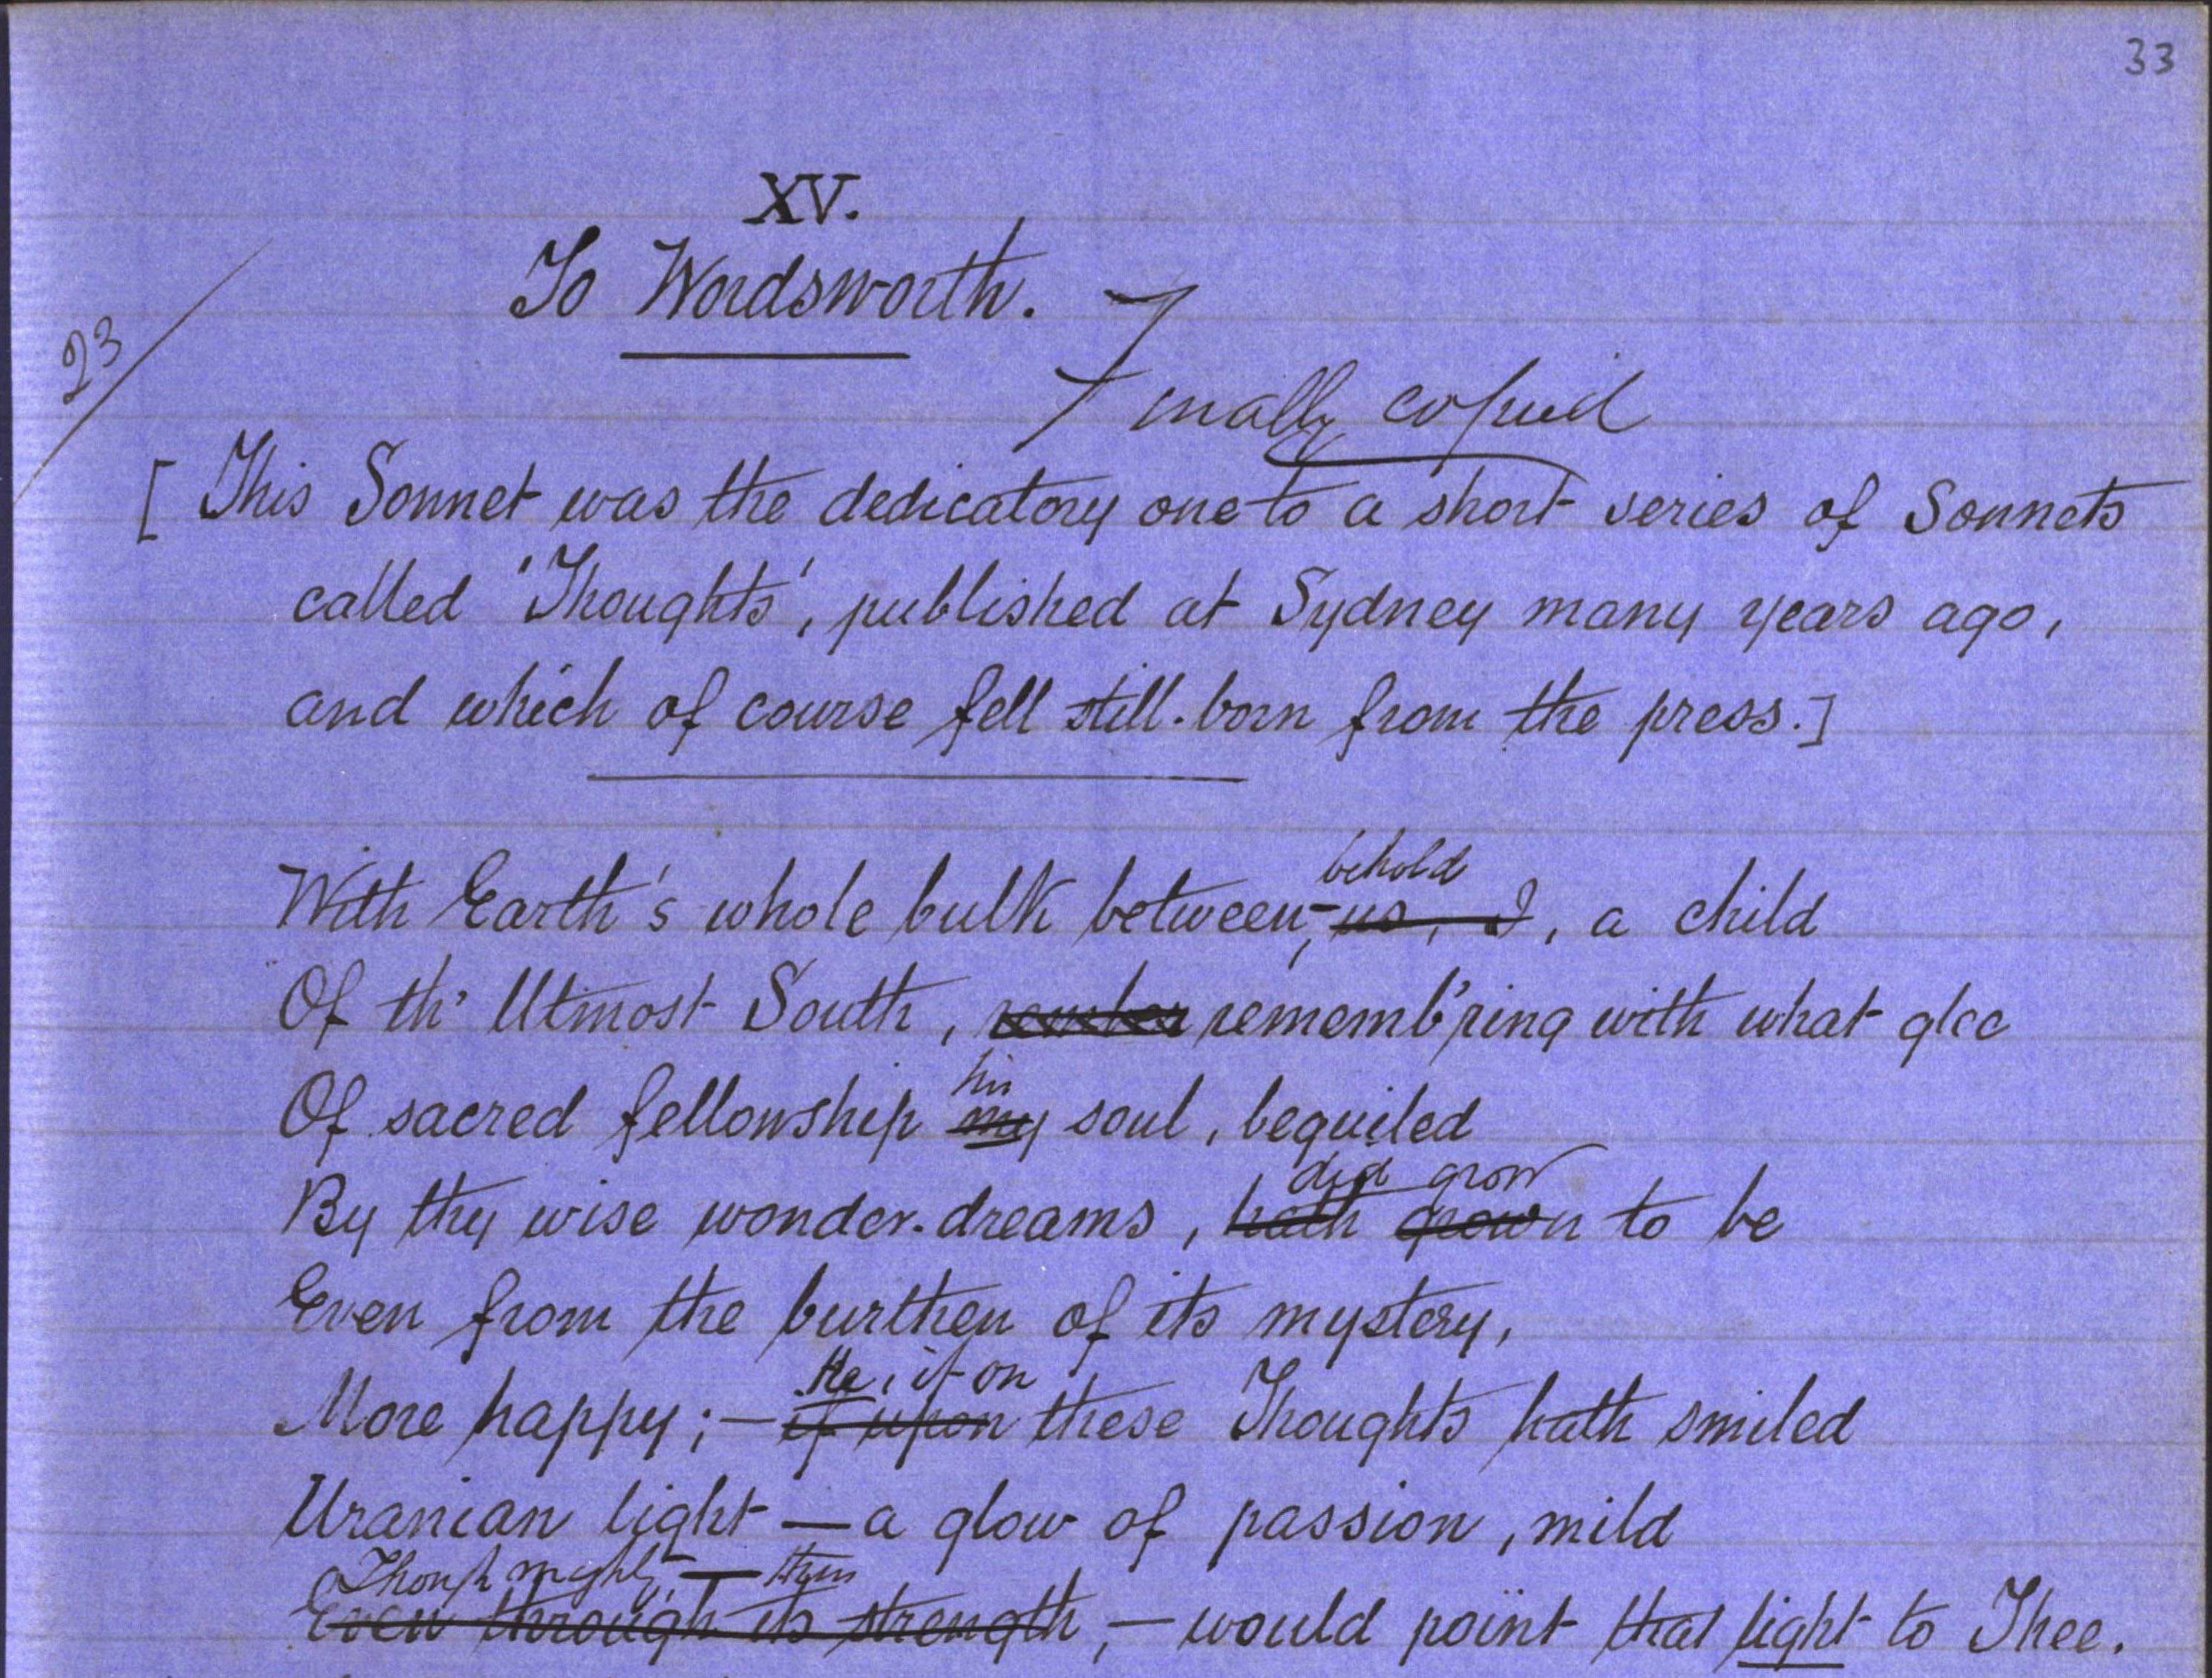 33
XV.
To Wordsworth.
23
Finally copied
[This Sonnet was the dedicatory one to a short series of Sonnets
called 'Thoughts', published at Sydney many years ago,
and which of course fell still-born from the press.]
behold
With Earth's whole bulk between, us, I, a child
Of th' Utmost South, rememb'ring with what glee
his
Of sacred fellowship my soul, beguiled
did grow
By thy wise wonder-dreams, hath grown to be
Even from the burthen of its mystery,
He, if on
More happy;— if upon these Thoughts hath smiled
Uranian light — a glow of passion, mild
Though mighty, —
Even through its strength, — would point that light to Thee.